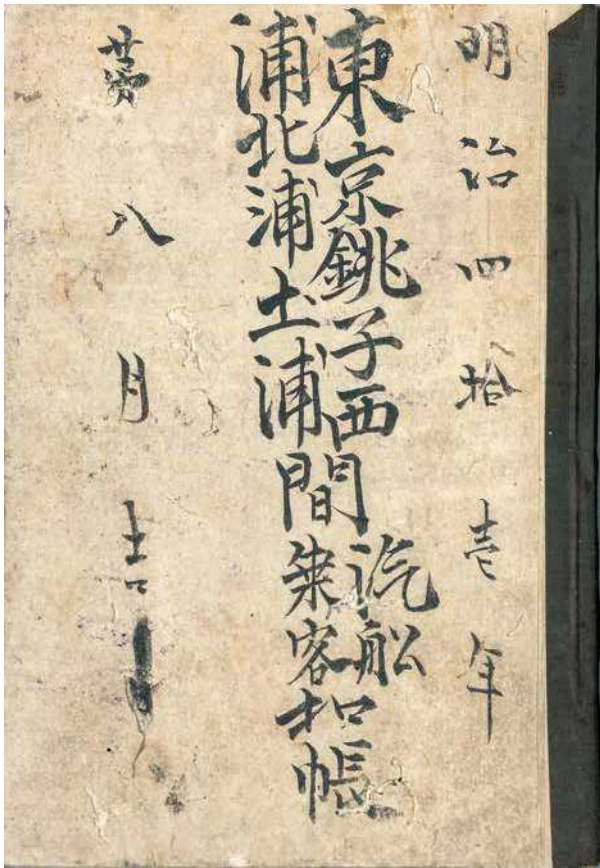 明治四拾壱年
東京銚子西
浦北浦圡浦
間
汽舩
乗客
扣帳
第八月吉日